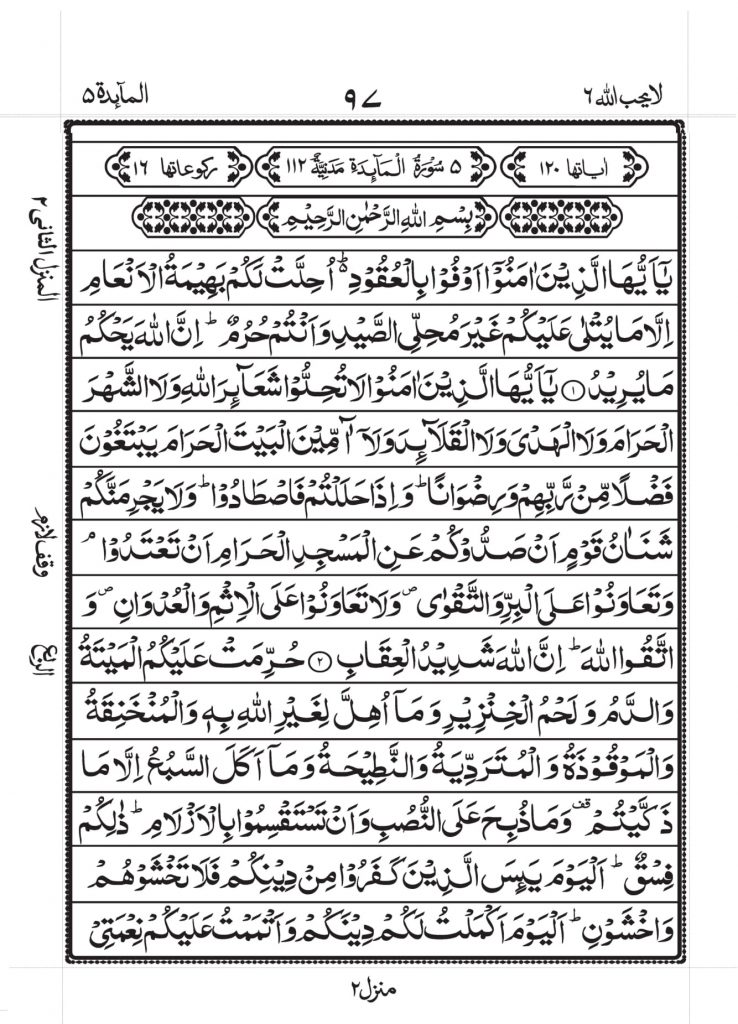 لا يحب الله ٦
٩٧
المآئدة ٥
اياتها ١٢٠
٥ سُوْرَةُ الْمَآئِدَةِ مَدَنِيَّةٌ ١١٢
ركوعاتها ١٦
بِسْمِ اللهِ الرَّحْمٰنِ الرَّحِيْمِ
يٰۤاَيُّهَا الَّذِيْنَ اٰمَنُوْۤا اَوْفُوْا بِالْعُقُوْدِ ؕ اُحِلَّتْ لَكُمْ بَهِيْمَةُ الْاَنْعَامِ
اِلَّا مَا يُتْلٰى عَلَيْكُمْ غَيْرَ مُحِلِّى الصَّيْدِ وَاَنْتُمْ حُرُمٌ ؕ اِنَّ اللهَ يَحْكُمُ
مَا يُرِيْدُ ۝١ يٰۤاَيُّهَا الَّذِيْنَ اٰمَنُوْا لَا تُحِلُّوْا شَعَآئِرَ اللهِ وَلَا الشَّهْرَ
الْحَرَامَ وَلَا الْهَدْىَ وَلَا الْقَلَآئِدَ وَلَاۤ اٰۤمِّيْنَ الْبَيْتَ الْحَرَامَ يَبْتَغُوْنَ
فَضْلًا مِّنْ رَّبِّهِمْ وَرِضْوَانًا ؕ وَاِذَا حَلَلْتُمْ فَاصْطَادُوْا ؕ وَلَا يَجْرِمَنَّكُمْ
شَنَاٰنُ قَوْمٍ اَنْ صَدُّوْكُمْ عَنِ الْمَسْجِدِ الْحَرَامِ اَنْ تَعْتَدُوْا ۘ
وَتَعَاوَنُوْا عَلَى الْبِرِّ وَالتَّقْوٰى ۖ وَلَا تَعَاوَنُوْا عَلَى الْاِثْمِ وَالْعُدْوَانِ ۖ وَ
اتَّقُوا اللهَ ؕ اِنَّ اللهَ شَدِيْدُ الْعِقَابِ ۝٢ حُرِّمَتْ عَلَيْكُمُ الْمَيْتَةُ
وَالدَّمُ وَلَحْمُ الْخِنْزِيْرِ وَمَاۤ اُهِلَّ لِغَيْرِ اللهِ بِهٖ وَالْمُنْخَنِقَةُ
وَالْمَوْقُوْذَةُ وَالْمُتَرَدِّيَةُ وَالنَّطِيْحَةُ وَمَاۤ اَكَلَ السَّبُعُ اِلَّا مَا
ذَكَّيْتُمْ قف وَمَا ذُبِحَ عَلَى النُّصُبِ وَاَنْ تَسْتَقْسِمُوْا بِالْاَزْلَامِ ؕ ذٰلِكُمْ
فِسْقٌ ؕ اَلْيَوْمَ يَئِسَ الَّذِيْنَ كَفَرُوْا مِنْ دِيْنِكُمْ فَلَا تَخْشَوْهُمْ
وَاخْشَوْنِ ؕ اَلْيَوْمَ اَكْمَلْتُ لَكُمْ دِيْنَكُمْ وَاَتْمَمْتُ عَلَيْكُمْ نِعْمَتِىْ
المنزل الثانى ٢
وقف لازم
الربع
منزل ٢